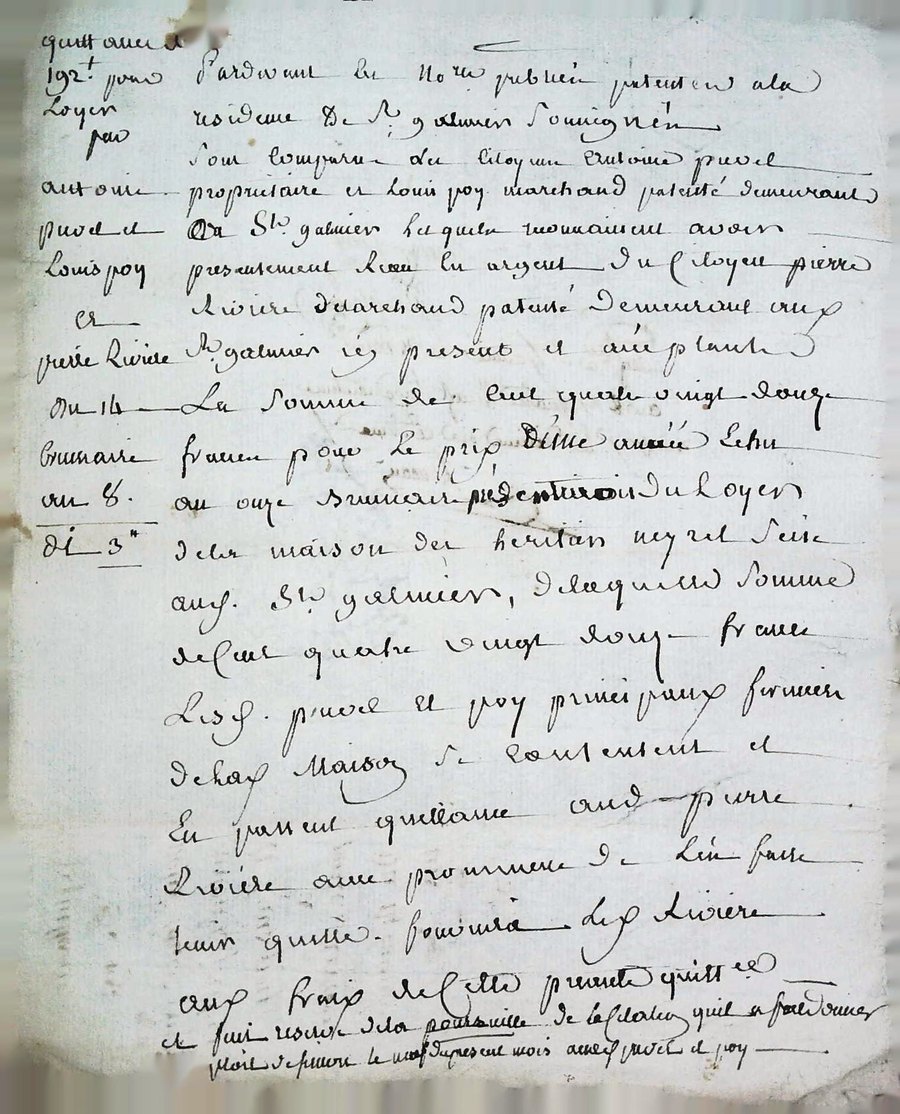 quittance de
192# pour
Loyer
par
antoine
puvel et
Louis poy
et
pierre Riviere
Du 14
brumaire
an 8.
dt 3"
Pardevant les No.re publics patentés a la
residence de St galmier Soussignés
Sont Comparus les Citoyens Antoine puvel
propriétaire et Louis poy marchand patenté demeurants
a St. galmier lesquels reconnaissent avoir
presentement Recu en argent du Citoyen pierre
Riviere Marchand patenté demeurant aud
St. galmier icy present et acceptant
La Somme de Cent quatre vingt douze
francs pour le prix d'une année Echue
au onze Brumaire du Loyer
de la maison des heritiers neyret Scise
aud. St. galmier, de laquelle Somme
de Cent quatre vingt douze francs
Lesd. puvel et poy principaux fermiers
de lad Maison Se Contentent et
En passent quittance aud pierre
Riviere avec promesse de L'en faire
tenir quitte. fournira Led Riviere
aux fraix de Cette presente quittce
et sans reserve de la poursuitte de la Citation qu'il a fait donner
le neuf du present mois auxd puvel et poy